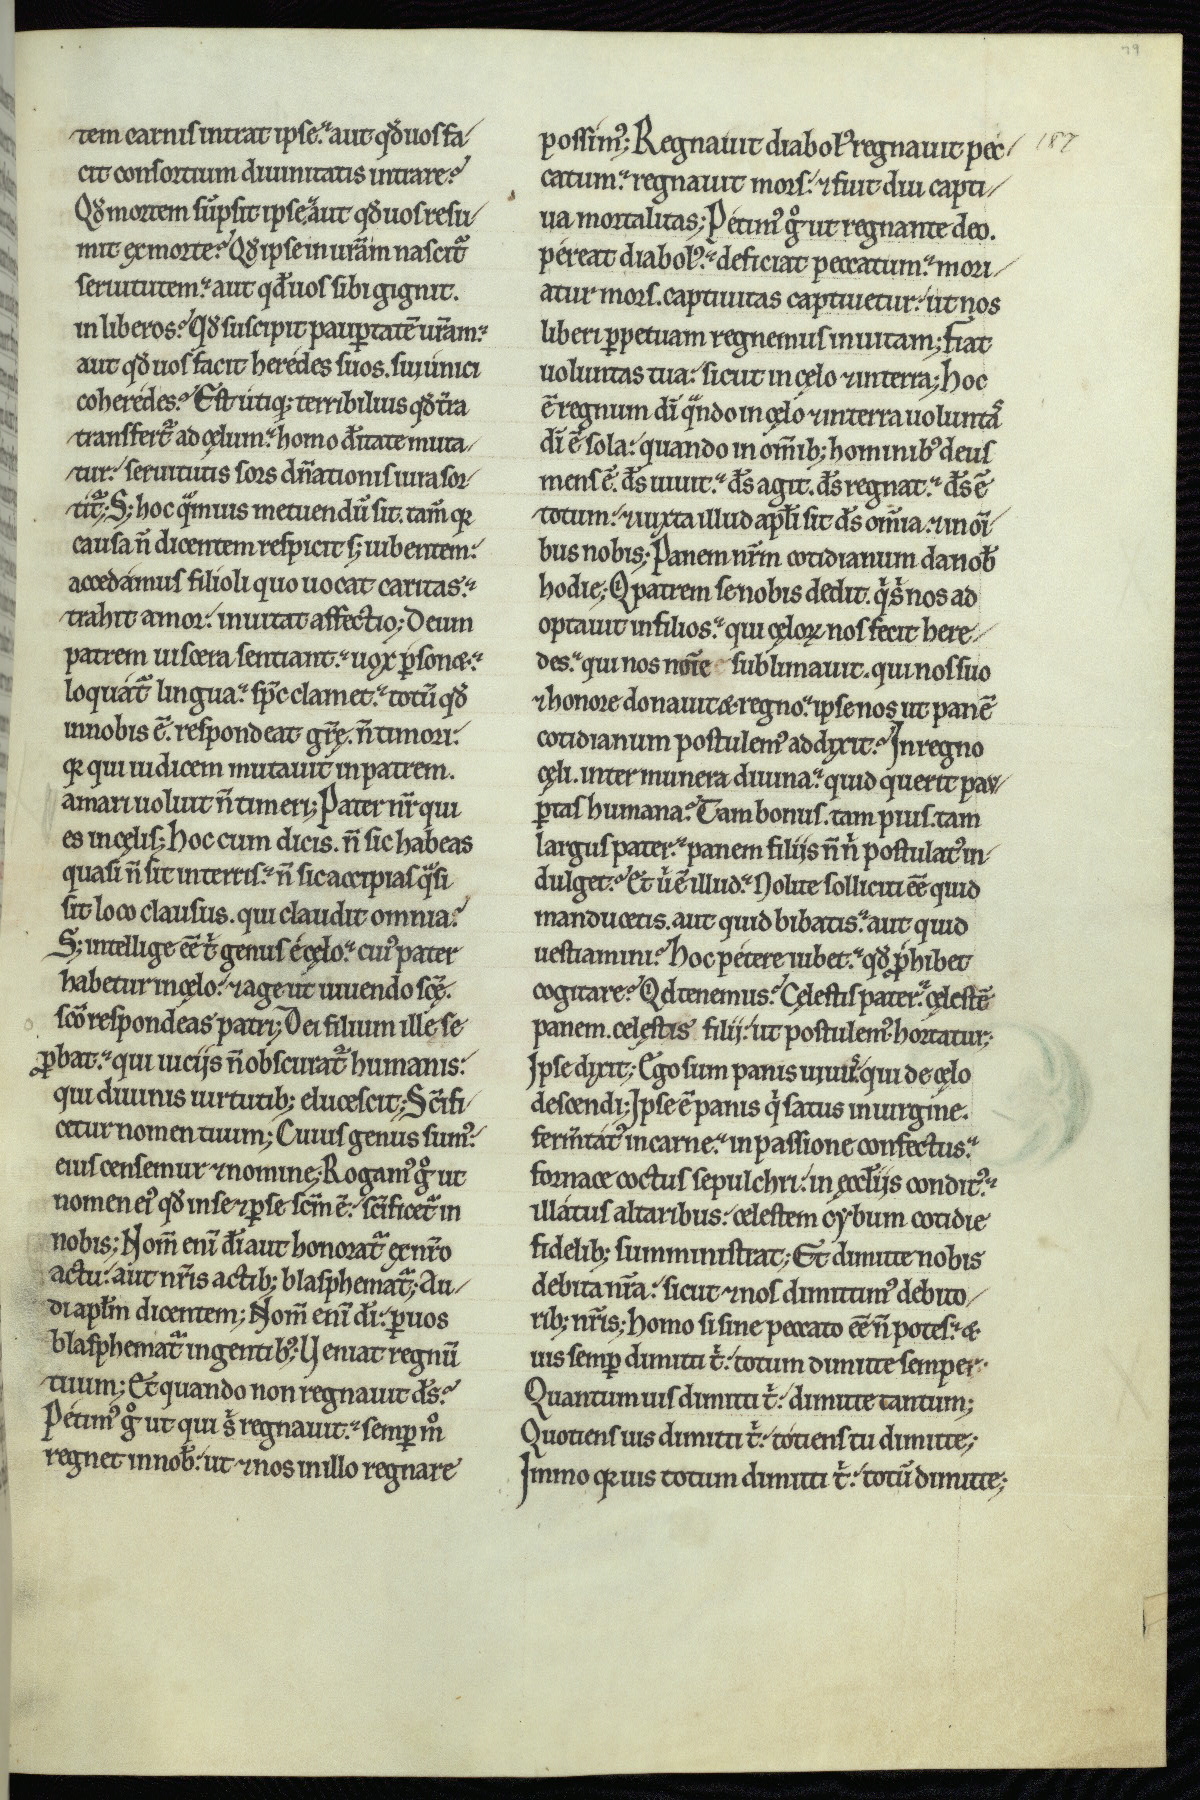 tem carnis intrat ipse. aut qđ uos fa/
cit consortium diuinitatis intrare?
Qđ mortem sūpsit ipse. aut qđ uos resu/
mit ex morte? Qđ ipse in ur̄am nascit᷑
seruitutem. aut qđ uos sibi gignit.
in liberos? Qđ suscipit paup̄tatē ur̄am.
aut qđ uos facit heredes suos. sui unici
coheredes? Est utiq; terribilius qđ tr̄a
transfert᷑ ad cęlum. homo d̄itate muta/
tur. seruitutis sors dn̄ationis iura sor/
tit᷑; S; hoc qͣmuis metuendū sit. tam̄ qꝛ
causa n̄ dicentem respicit s; iubentem.
accedamus filioli quo uocat caritas.
trahit amor. inuitat affectio; Deum
patrem uiscera sentiant. uox p̄sonæ.
loquat᷑ lingua. sp̄c clamet. totū qđ
in nobis ē. respondeat gr̄ę. n̄ timori.
qꝛ qui iudicem mutauit in patrem.
amari uoluit n̄ timeri; Pater nr̄ qui
es in cęlis; hoc cum dicis. n̄ sic habeas
quasi n̄ sit in terris. n̄ sic accipias qͣsi
sit loco clausus. qui claudit omnia.
S; intellige eē tͥ genus e cęlo. cui᷒ pater
habetur in cęlo. ⁊ age ut uiuendo sc̄ę.
sc̄o respondeas patri; Dei filium ille se
ꝓbat. qui uicijs n̄ obscurat᷑ humanis.
qui diuinis uirtutib; elucescit; Sc̄ifi/
cetur nomen tuum; Cuius genus sum᷒.
eius censemur ⁊ nomine; Rogam᷒ gͦ ut
nomen ei᷒ qđ in se ⁊ p̄ se sc̄m ē. sc̄ificet᷑ in
nobis; Nom̄ eni d̄i aut honorat᷑ ex nr̄o
actu. aut nr̄is actib; blasphemat᷑; Au/
di apłm dicentem; Nom̄ eni d̄i. p̄ uos
blasphemat᷑ in gentib᷒; Veniat regnū
tuum; Et quando non regnauit d̄s?
Petim᷒ gͦ ut qui sͥ regnauit. semp̄ mͦ
regnet in nob̄. ut ⁊ nos in illo regnare
possim᷒; Regnauit diabol᷒ regnauit pec/ 187
catum. regnauit mors. ⁊ fuit diu capti/
ua mortalitas; Petim᷒ gͦ ut regnante deo.
pereat diabol᷒. deficiat peccatum. mori/
atur mors. captiuitas captiuetur. ut nos
liberi p̄petuam regnemus in uitam; Fiat
uoluntas tua. sicut in cęlo ⁊ in terra; hoc
ē regnum d̄i qͣndo in cęlo ⁊ in terra uoluntaˢ
d̄i ē sola. quando in om̄ib; hominib᷒ deus
mens ē. d̄s uiuit. d̄s agit. d̄s regnat. d̄s ē
totum. ⁊ iuxta illud apłi sit d̄s om̄ia. ⁊ in oī/
bus nobis; Panem nr̄m cotidianum da nob̄
hodie; Q patrem se nobis dedit. qͥ sͥ nos ad
optauit in filios. qui cęloꝝ nos fecit here/
des. qui nos noīe sublimauit. qui nos suo
⁊ honore donauit & regno. ipse nos ut panē
cotidianum postulem᷒ addixit? In regno
cęli. inter munera diuina. quid querit pau/
p̄tas humana? Tam bonus. tam pius. tam
largus pater. panem filijs n̄ nͥ postulat᷒ in/
dulget? Et uͥ ē illud. Nolite solliciti eē quid
manducetis. aut quid bibatis. aut quid
uestiamini? hoc petere iubet. qđ ꝓhibet
cogitare? Qd tenemus? Cęlestis pater. cęlestē
panem. celęstis filij. ut postulem᷒ hortatur;
Ipse dixit; Ego sum panis uiuuˢ. qui de cęlo
descendi; Ipse ē panis qͥ satus in uirgine.
ferm̄tat᷒ in carne. in passione confectus.
fornace coctus sepulchri. in ęccłijs condit᷒.
illatus altaribus. celestem cybum cotidie
fidelib; sumministrat; Et dimitte nobis
debita nr̄a. sicut ⁊ nos dimittim᷒ debito/
rib; nr̄is; homo si sine peccato eē n̄ potes. &
uis semp̄ dimitti tͥ. totum dimitte semper.
Quantum uis dimitti tͥ. dimitte tantum;
Quotiens uis dimitti tͥ. totiens tu dimitte;
Immo qꝛ uis totum dimitti tͥ. totū dimitte;